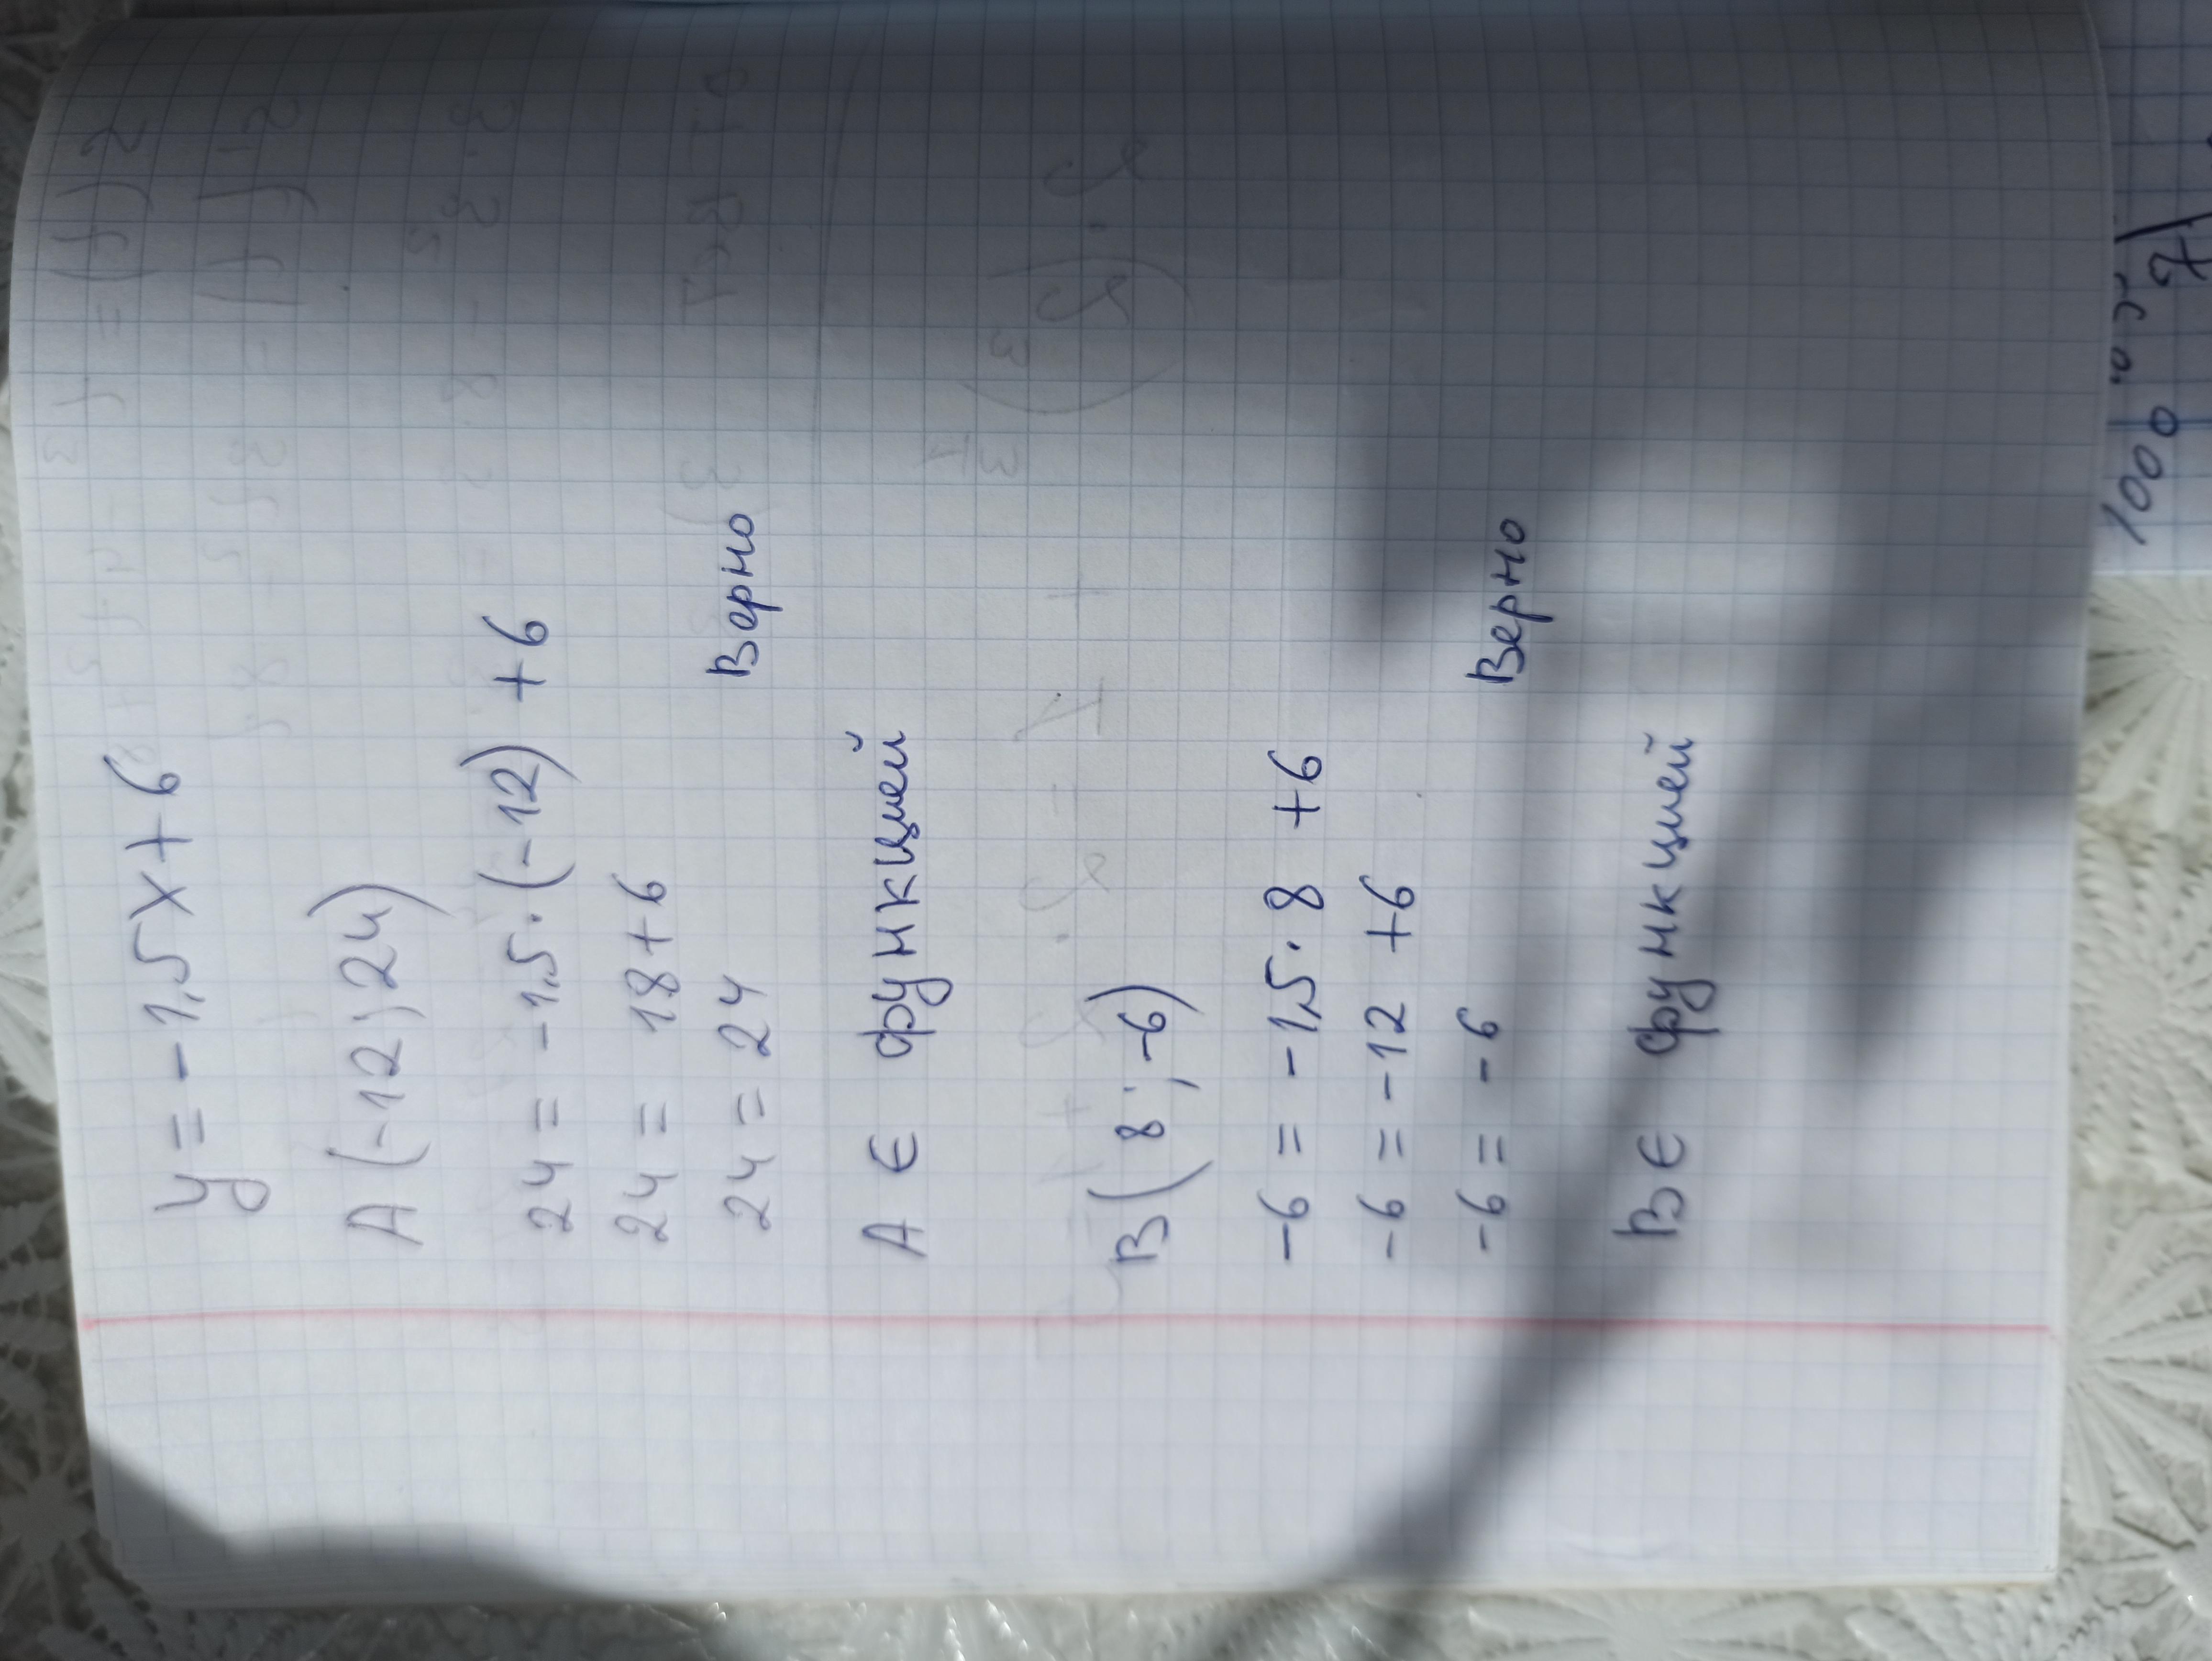 y = -1,5x + 6
A (-12; 24)
24 = -1,5 · (-12) + 6
24 = 18 + 6
24 = 24 Верно
A ∈ функцией
B (8 ; -6)
-6 = -1,5 · 8 +6
-6 = -12 +6
-6 = -6 Верно
B ∈ функцией